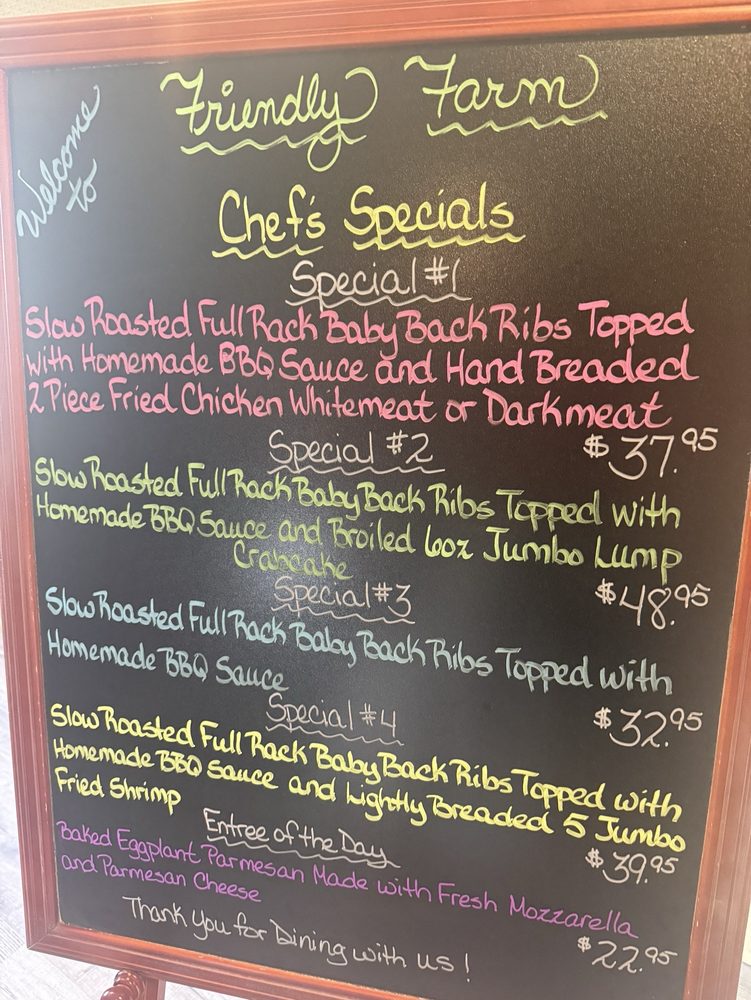 Welcome to
Friendly Farm
Chef's Specials
Special #1
Slow Roasted Full Rack Baby Back Ribs Topped
with Homemade BBQ Sauce and Hand Breaded
2 Piece Fried Chicken Whitemeat or Darkmeat
$37.95
Special #2
Slow Roasted Full Rack Baby Back Ribs Topped with
Homemade BBQ Sauce and Broiled 6oz Jumbo Lump
Crabcake
$48.95
Special #3
Slow Roasted Full Rack Baby Back Ribs Topped with
Homemade BBQ Sauce
$32.95
Special #4
Slow Roasted Full Rack Baby Back Ribs Topped with
Homemade BBQ Sauce and Lightly Breaded 5 Jumbo
Fried Shrimp
$39.95
Entree of the Day
Baked Eggplant Parmesan Made with Fresh Mozzarella
and Parmesan Cheese
$22.95
Thank You for Dining with us!